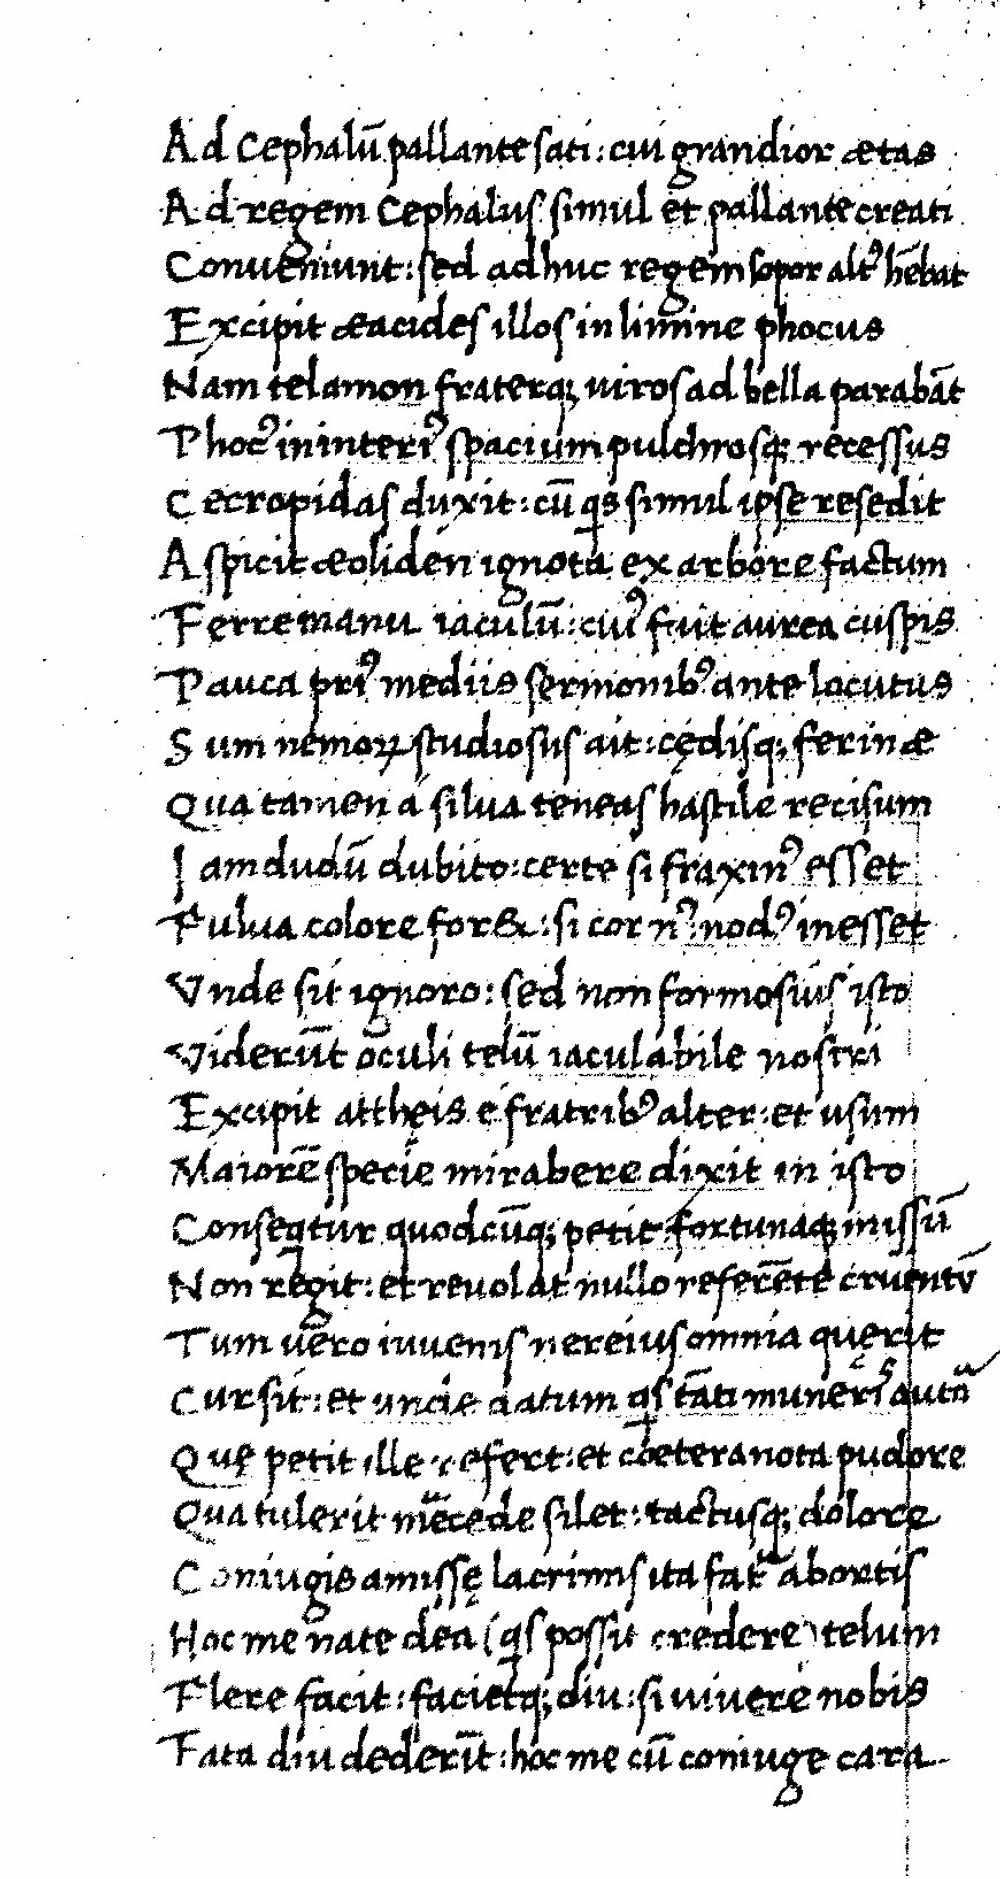 Ad Cephalū pallante sati: cui grandior ætas
Ad regem Cephalus simul et pallante creati
Conveniunt: sed adhuc regem sopor altꝰ hēbat
Excipit æacides illos in limine phocus
Nam telamon fraterqꝫ viros ad bella parabāt
Phocꝰ in interiꝰ spacium pulchrosqꝫ recessus
Cecropidas duxit: cū qͥs simul ipse resedit
Aspicit æoliden ignota ex arbore factum
Ferre manu iaculū: cuiꝰ fuit aurea cuspis
Pauca priꝰ mediis sermonibꝰ ante locutus
Sum nemoꝝ studiosus ait: cędisqꝫ ferinæ
Qua tamen á silva teneas hastile recisum
Iamdudū dubito: certe si fraxinꝰ esset
Fulva colore for&: si cornꝰ: nodꝰ inesset
Vnde sit ignoro: sed non formosius isto
Viderūt oculi telū iaculabile nostri
Excipit attheis é fratribꝰ alter: et usum
Maiorē specie mirabere dixit in isto
Conseqtur quodcūqꝫ petit: fortunaqꝫ missū
Non regit: et revolat nullo referēte cruentū
Tum vero iuvenis nereius omnia quęrit
Cur sit: et unde datum qs tāti munerꝭ autͦ
Quę petit ille refert: et cœtera nota pudore
Qua tulerit mͬcede silet: tactusqꝫ dolore
Coniugis amissę lacrimis ita fatͬ abortis
Hoc me nate dea (qs possit credere) telum
Flere facit: facietqꝫ diu: si vivere nobis
Fata diu dederūt: hoc me cū coniuge cara